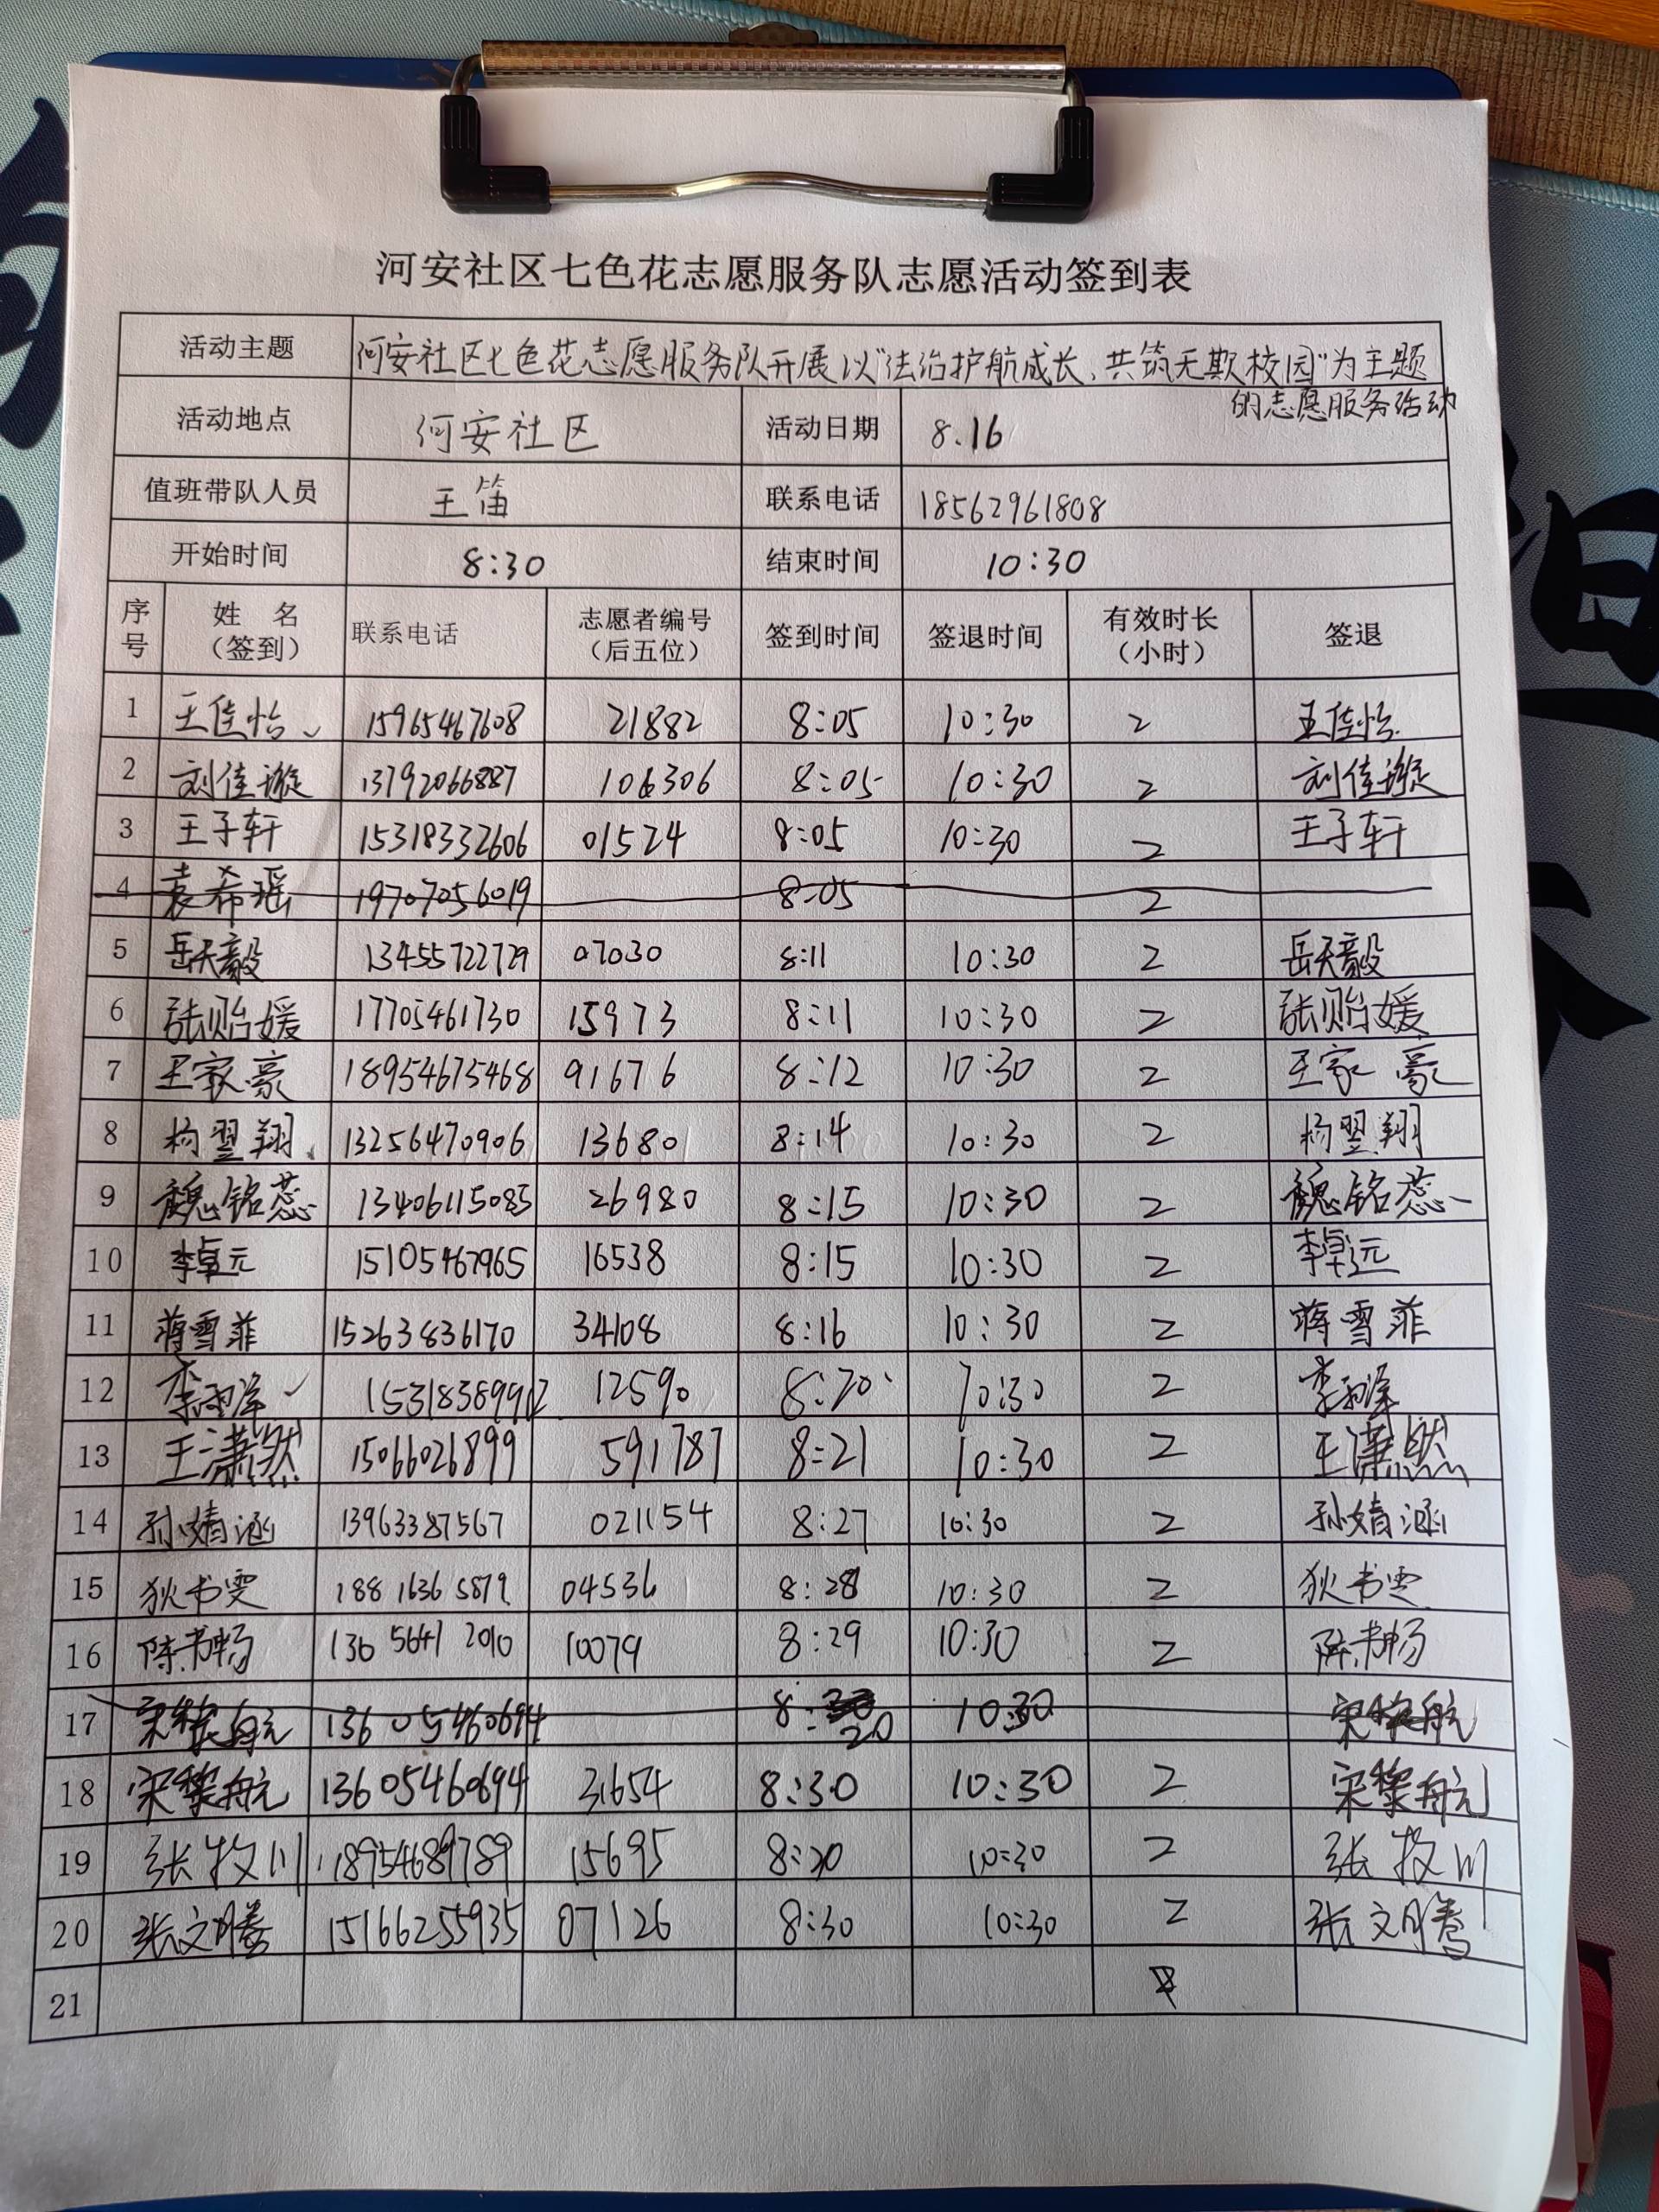 河安社区七色花志愿服务队志愿活动签到表
活动主题 河安社区七色花志愿服务队开展以"法治护航成长、共筑无欺校园"为主题
的志愿服务活动
活动地点 河安社区 活动日期 8.16
值班带队人员 王笛 联系电话 18562961808
开始时间 8:30 结束时间 10:30
序号 姓名（签到） 联系电话 志愿者编号（后五位） 签到时间 签退时间 有效时长（小时） 签退
1 王佳怡 15965467608 21882 8:05 10:30 2 王佳怡
2 刘佳璇 13792066887 106306 8:05 10:30 2 刘佳璇
3 王子轩 15318332606 01524 8:05 10:30 2 王子轩
4 袁希瑶 19707056019 8:05 2
5 岳天毅 13455722729 07030 8:11 10:30 2 岳天毅
6 张贻媛 17705461730 15973 8:11 10:30 2 张贻媛
7 王家豪 18954675468 91676 8:12 10:30 2 王家豪
8 杨翌翔 13256470906 13680 8:14 10:30 2 杨翌翔
9 魏铭蕊 13406115085 26980 8:15 10:30 2 魏铭蕊
10 李卓元 15105467965 16538 8:15 10:30 2 李卓远
11 蒋雪菲 15263836170 34108 8:16 10:30 2 蒋雪菲
12 李雨泽 12590 8:20 10:30 2 李雨泽
13 王潇然 15066026899 591787 8:21 10:30 2 王潇然
14 孙婧涵 13963387567 021154 8:27 10:30 2 孙婧涵
15 狄书雯 188 1636 5879 04536 8:28 10:30 2 狄书雯
16 陈书畅 136 5641 2010 10079 8:29 10:30 2 陈书畅
17 宋黎航 13605460694 8:20 10:30 宋黎航
18 宋黎航 13605460694 31654 8:30 10:30 2 宋黎航
19 张牧川 18954689789 15695 8:30 10:30 2 张牧川
20 张文腾 15166255935 07126 8:30 10:30 2 张文腾
21